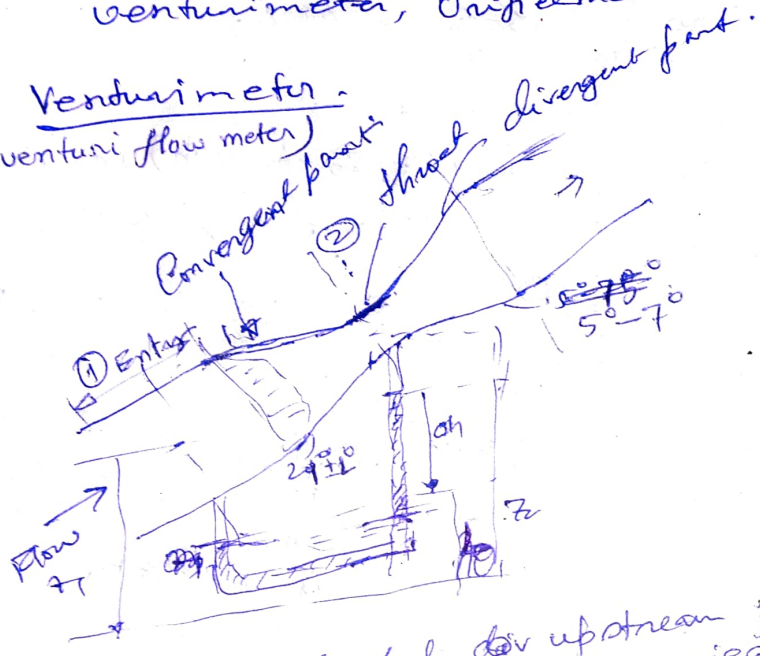 venturimeter,
Venturimeter.
(venturi flow meter)
Convergent part
② throat divergent part.
① Entry
5°-7°
21°±1°
Δh
Z2
Flow
Z1
for upstream